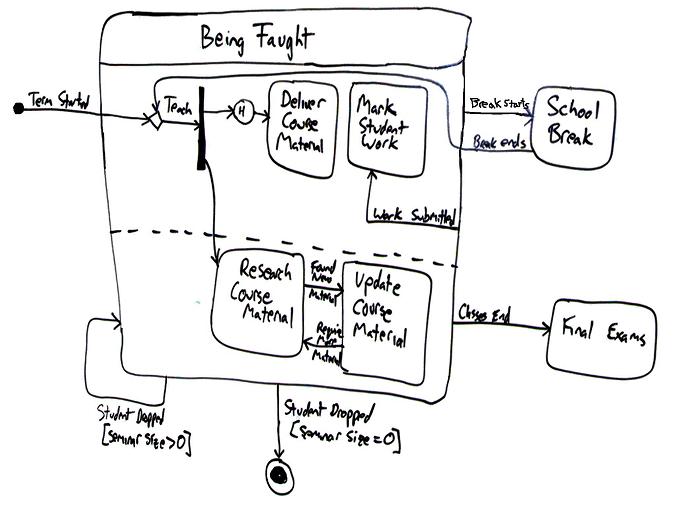 Being Taught
Term Started
Teach
H
Deliver
Course
Material
Mark
Student
Work
Break starts
Break ends
School
Break
Work Submitted
Research
Course
Material
Found
New
Material
Require
More
Material
Update
Course
Material
Classes End
Final Exams
Student Dropped
[Seminar Size>0]
Student Dropped
[Seminar Size=0]